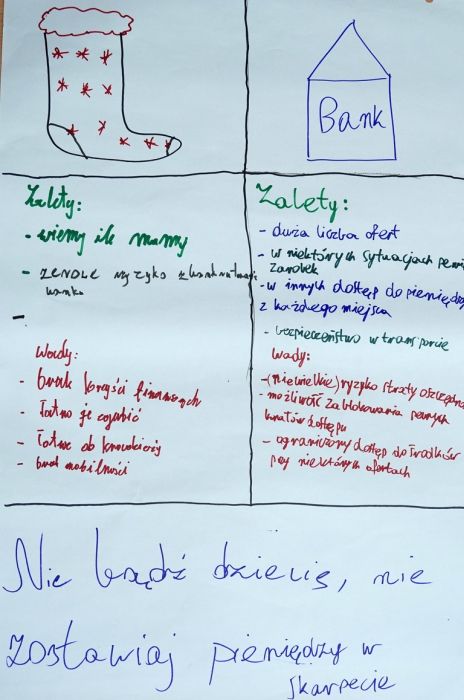 Bank
Zalety:
- wiemy ile mamy
- zerowe ryzyko zbankrutowania
banku
-
Wady:
- brak korzyści finansowych
- łatwo je zgubić
- łatwe do kradzieży
- brak mobilności
Zalety:
- duża liczba ofert
- w niektórych sytuacjach
zarobek
- w innych dostęp do pieniędzy
z każdego miejsca
- bezpieczeństwo w transporcie
wady:
- (niewielkie) ryzyko straty
- możliwość zablokowania pewnych
dostępu
- ograniczony dostęp do środków
przy niektórych ofertach
Nie bądź dziecię, nie
zostawiaj pieniędzy w
skarpecie